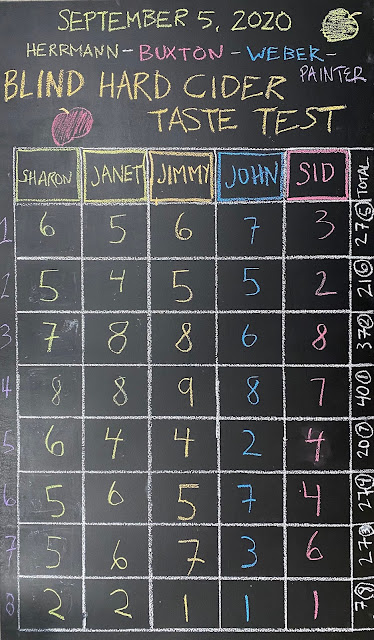 SEPTEMBER 5, 2020
HERRMANN - BUXTON - WEBER -
PAINTER
BLIND HARD CIDER
TASTE TEST
SHARON JANET JIMMY JOHN SID TOTAL
1 6 5 6 7 3 27 (5)
2 5 4 5 5 2 21 (6)
3 7 8 8 6 8 37 (2)
4 8 8 9 8 7 40 (1)
5 6 4 4 2 4 20 (7)
6 5 6 5 7 4 27 (4)
7 5 6 7 3 6 27 (3)
8 2 2 1 1 1 7 (8)